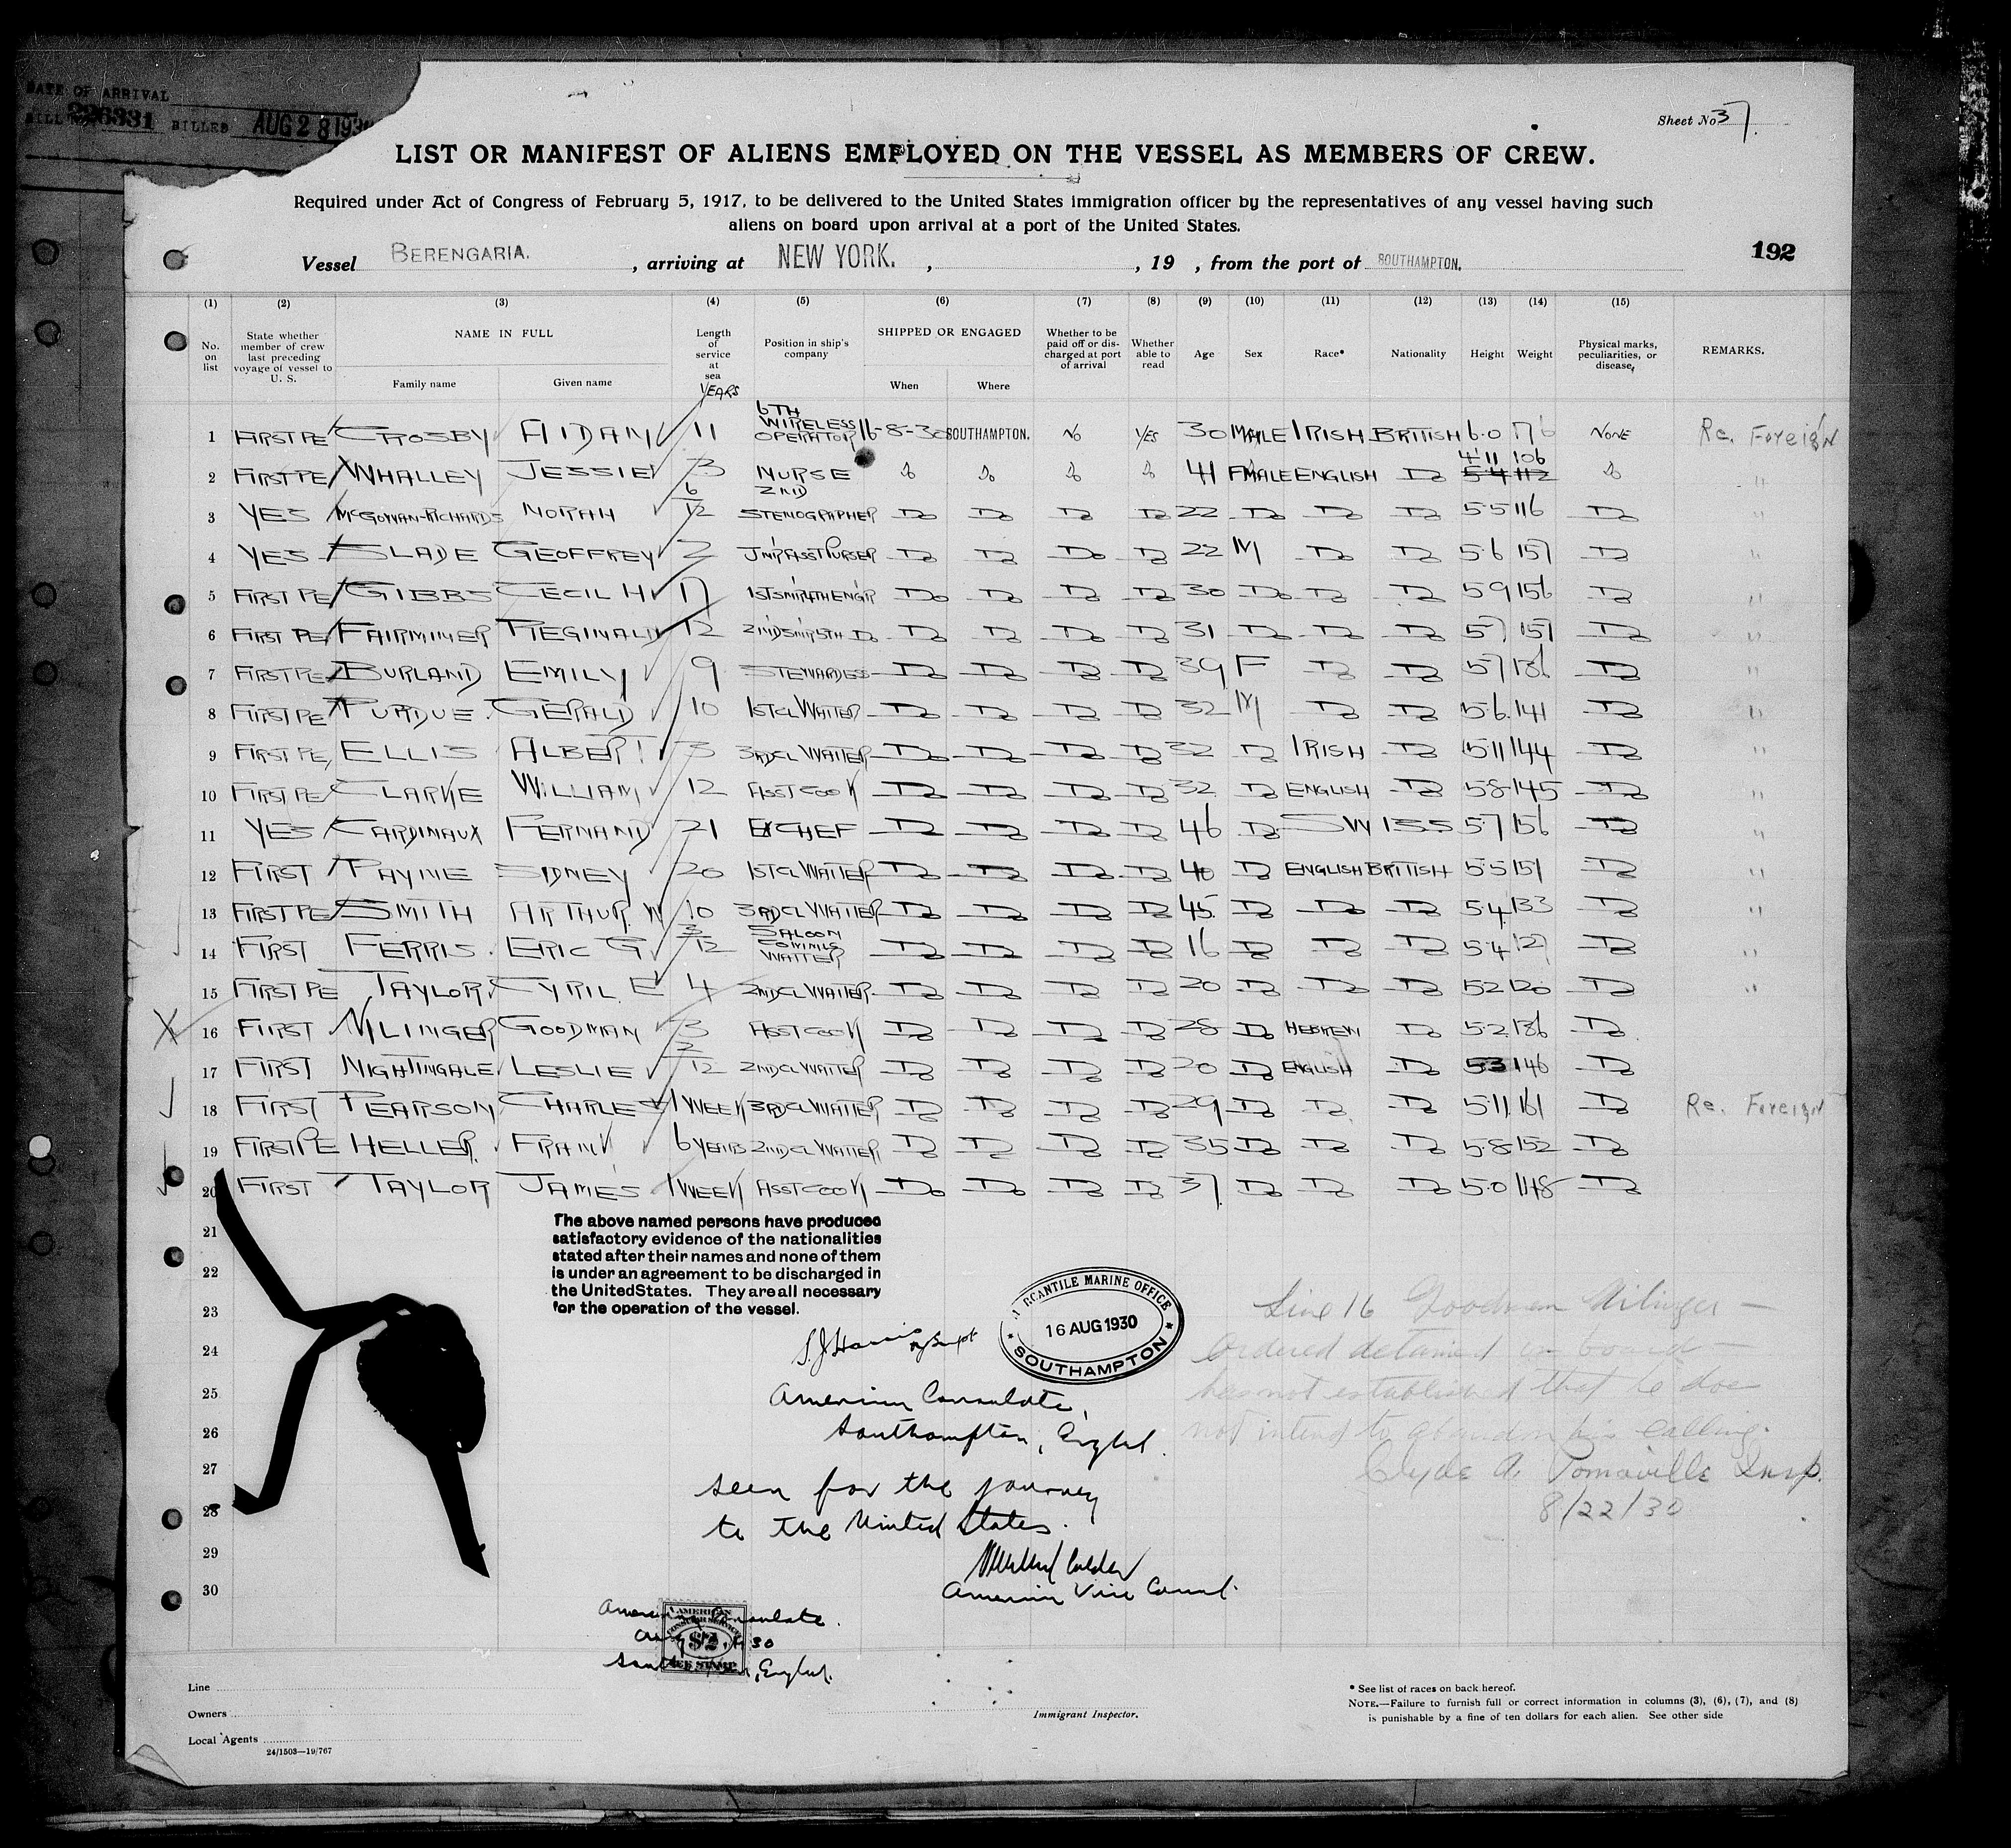 DATE OF ARRIVAL
BILL 226331 BILLED AUG 28 193
Sheet No 37.
LIST OR MANIFEST OF ALIENS EMPLOYED ON THE VESSEL AS MEMBERS OF CREW.
Required under Act of Congress of February 5, 1917, to be delivered to the United States immigration officer by the representatives of any vessel having such
aliens on board upon arrival at a port of the United States.
192
Vessel BERENGARIA. , arriving at NEW YORK. , , 19 , from the port of SOUTHAMPTON.
(1) (2) (3) (4) (5) (6) (7) (8) (9) (10) (11) (12) (13) (14) (15)
No. on list State whether member of crew last preceding voyage of vessel to U. S. NAME IN FULL Family name Given name Length of service at sea YEARS Position in ship's company SHIPPED OR ENGAGED When Where Whether to be paid off or discharged at port of arrival Whether able to read Age Sex Race* Nationality Height Weight Physical marks, peculiarities, or disease REMARKS.
1 FIRST PE CROSBY AIDAN 11 6TH WIRELESS OPERATOR 16-8-30 SOUTHAMPTON. NO YES 30 MALE IRISH BRITISH 6.0 176 NONE Re. Foreign
2 FIRST PE WHALLEY JESSIE 3 NURSE Do Do Do Do 41 FMALE ENGLISH Do 5.4 112 4'11 106 Do "
3 YES McGOWAN-RICHARDS NORAH 6/12 2ND STENOGRAPHER Do Do Do Do 22 Do Do Do 5.5 116 Do "
4 YES SLADE GEOFFREY 2 JNR ASST PURSER Do Do Do Do 22 M Do Do 5.6 157 Do "
5 FIRST PE GIBBS CECIL H 17 1ST SNR 4TH ENGR Do Do Do Do 30 Do Do Do 5.9 156 Do "
6 FIRST PE FAIRMINER REGINALD 12 2ND SNR 5TH Do Do Do Do Do 31 Do Do Do 5.7 157 Do "
7 FIRST PE BURLAND EMILY 9 STEWARDESS Do Do Do Do 39 F Do Do 5.7 186 Do "
8 FIRST PE PURDUE. GERALD 10 1ST CL WAITER Do Do Do Do 32 M Do Do 5.6. 141 Do "
9 FIRST PE, ELLIS ALBERT 3 3RD CL WAITER Do Do Do Do 32 Do IRISH Do 5.11 144 Do "
10 FIRST PE CLARKE WILLIAM 12 ASST COOK Do Do Do Do 32 Do ENGLISH Do 5.8 145 Do "
11 YES CARDINAUX FERNAND 21 EX CHEF Do Do Do Do 46 Do SWISS 5.7 156 Do "
12 FIRST PAYNE SIDNEY 20 1ST CL WAITER Do Do Do Do 40 Do ENGLISH BRITISH 5.5 151 Do "
13 FIRST PE SMITH ARTHUR. W 10 3RD CL WAITER Do Do Do Do 45 Do Do Do 5.4. 133 Do "
14 FIRST FERRIS. ERIC G 3/12 SALOON COMMIS WAITER Do Do Do Do 16 Do Do Do 5.4 127 Do "
15 FIRST PE TAYLOR. CYRIL. E 4 2ND CL WAITER Do Do Do Do 20 Do Do Do 5.2 120 Do "
X 16 FIRST NILINGER GOODMAN 3 ASST COOK Do Do Do Do 28 Do HEBREW Do 5.2 186 Do
17 FIRST NIGHTINGALE. LESLIE 2/12 2ND CL WAITER Do Do Do Do 20 Do ENGLISH Do 5.3 146 Do
18 FIRST PEARSON CHARLES 1 WEEK 3RD CL WAITER Do Do Do Do 29 Do Do Do 5.11. 161 Do Re. Foreign
19 FIRST PE HELLER. FRANK 6 YEARS 2ND CL WAITER Do Do Do Do 35 Do Do Do 5.8 152 Do
20 FIRST TAYLOR JAMES 1 WEEK ASST COOK Do Do Do Do 37. Do Do Do 5.0 148 Do
21
22
23
24
25
26
27
28
29
30
The above named persons have produced
satisfactory evidence of the nationalities
stated after their names and none of them
is under an agreement to be discharged in
the United States. They are all necessary
for the operation of the vessel.
S. J. Harris
MERCANTILE MARINE OFFICE
16 AUG 1930
SOUTHAMPTON
American Consulate,
Southampton, England.
seen for the journey
to the United States.
American Vice Consul.
Line 16 Goodman Nilinger —
Ordered detained on board —
has not established that he does
not intend to abandon his calling.
Clyde A. Pomaville Insp.
8/22/30
American Consulate.
Aug 30
Southampton, England.
AMERICAN
CONSULAR SERVICE
$2
FEE STAMP
Line
Owners
Local Agents
24/1503—19/767
Immigrant Inspector.
* See list of races on back hereof.
NOTE.—Failure to furnish full or correct information in columns (3), (6), (7), and (8)
is punishable by a fine of ten dollars for each alien. See other side